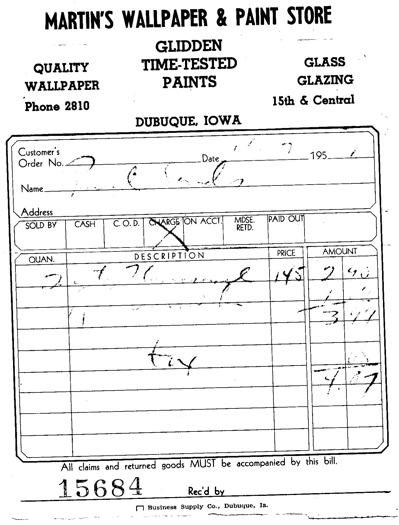 MARTIN'S WALLPAPER & PAINT STORE
QUALITY WALLPAPER
Phone 2810
GLIDDEN TIME-TESTED PAINTS
GLASS GLAZING
15th & Central
DUBUQUE, IOWA
Customer's Order No. Date 195
Name
Address
SOLD BY CASH C. O. D. CHARGE ON ACCT. MDSE. RETD. PAID OUT
QUAN. DESCRIPTION PRICE AMOUNT
2 145 2 90
tax
All claims and returned goods MUST be accompanied by this bill.
15684 Rec'd by
Business Supply Co., Dubuque, Ia.